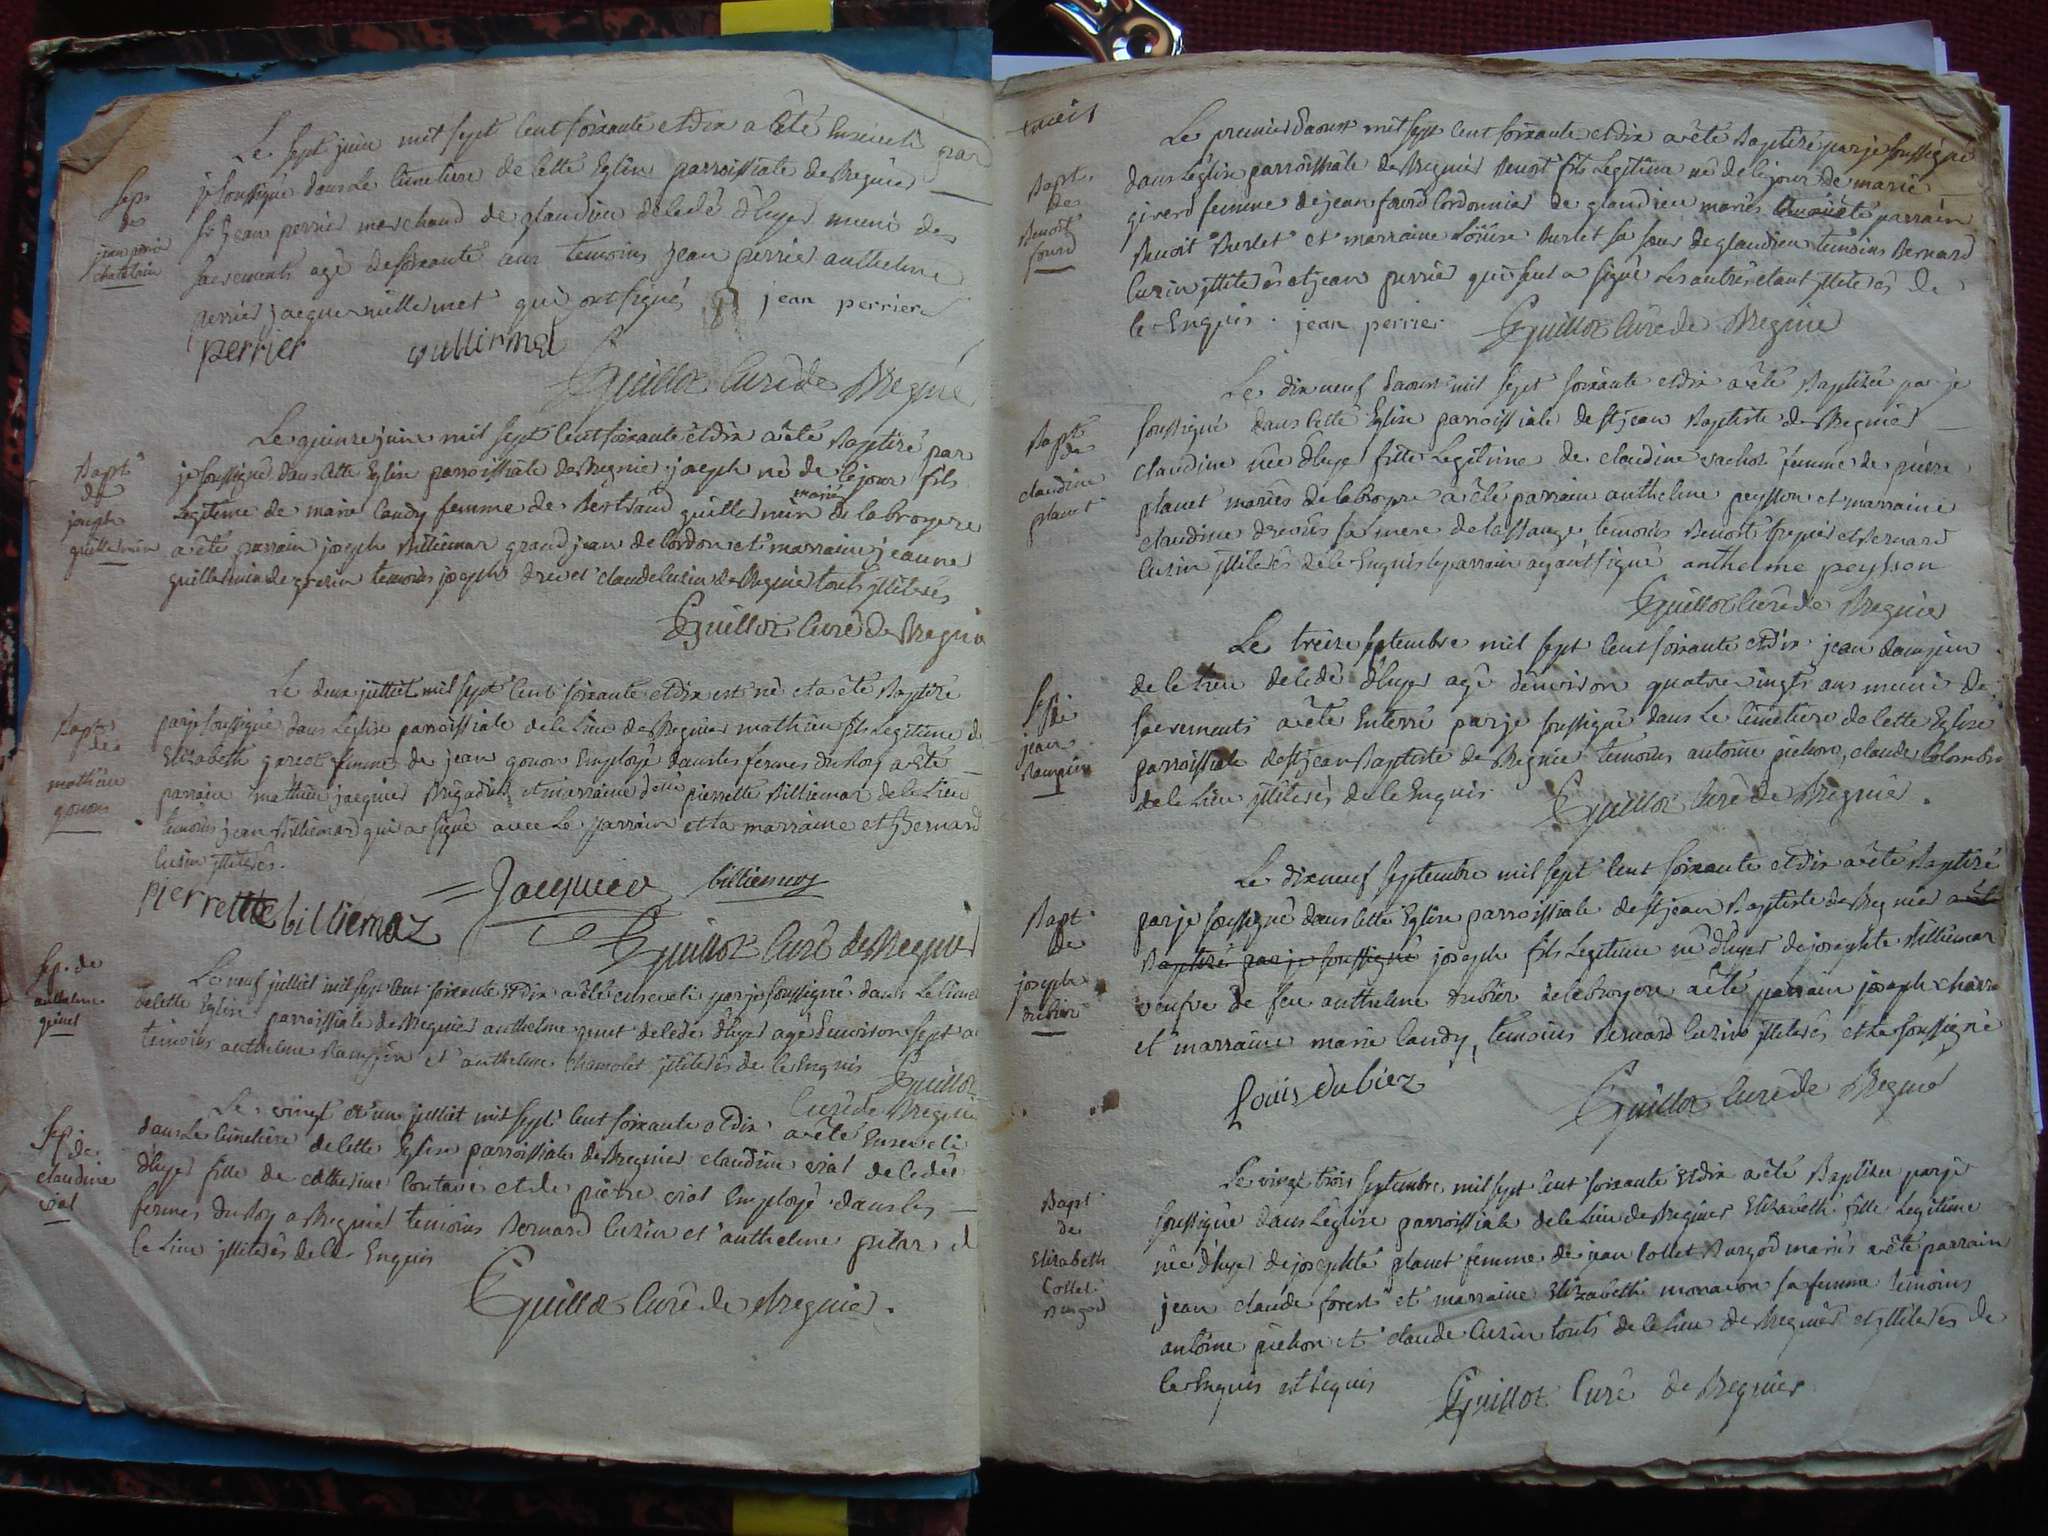 Le sept juin mil sept cent soixante et dix a êté Enseveli par
je soussigné dans Le cimetiere de cette Eglise parroissiale de Bregnier
Sr jean perrier marchand de glandieu décedé d'hyer muni des
sacrements agé de soixante ans temoins jean perrier anthelme
perrier jacque vuillermet qui ont signés jean perrier
perrier vullirmet
Guillot Curé de Bregnié
Sep.
de
jean perrier
chatelain
Le quinze juin mil sept cent soixante et dix a êté Baptizé par
je soussigné dans cette Eglise parroissiale de Bregnier joseph né de ce jour fils
Legitime de marie Candy femme de Bertrand guillermin mariés de la broyere
a êté parrain joseph Billiemaz grand jean de Cordon et marraine jeanne
guillermin de temoins joseph drevet claude Cuzin de Bregnier touts illiterés
Guillot Curé de Bregnier
Bapt.
de
joseph
guillermin
Le deux julliet mil sept cent soixante et dix est né et a êté Baptizé
par je soussigné dans L'eglise parroissiale de ce Lieu de Bregnier mathieu fils Legitime d
Elizabeth femme de jean gonon Employé dans les fermes du Roy a êté
parrain mathieu jacquier Brigadier et marraine pierrette Billiemaz de ce Lieu
temoins jean Billiemaz qui a signé avec Le parrain et La marraine et Bernard
Cuzin illiterés.
pierrette billiemaz Jacquier billiemaz
Guillot Curé de Bregnier
Bapt.
de
mathieu
gonon
Le neuf julliet mil sept cent soixante et dix a êté enseveli par je soussigné dans Le cimet
de cette Eglise parroissiale de Bregnier anthelme décedé d'hyer agé d'environ sept a
temoins anthelme et anthelme Chamolet illiterés de ce Enquis Guillot
Curé de Bregnier
Sep. de
anthelme
Le vingt et un julliet mil sept cent soixante et dix a êté Enseveli
dans Le cimetiere de cette Eglise parroissiale de Bregnier claudine vial décedée
d'hyer fille de catherine et de pierre vial Employé dans les
fermes du Roy a Bregnier temoins Bernard Cuzin et anthelme d
ce Lieu illiterés de ce Enquis
Guillot Curé de Bregnier.
Sep.
de
claudine
vial
Le premier d'aoust mil sept cent soixante et dix a êté Baptizé par je soussigné
dans L'eglise parroissiale de Bregnier Benoit fils Legitime né de ce jour de marie
girerd femme de jean fourd Cordonnier de glandieu mariés a êté parrain
Benoit Burlet et marraine Loüise Burlet sa soeur de glandieu temoins Bernard
Cuzin illiterés et jean perrier qui seul a signé Les autres étant illiterés de
ce Enquis. jean perrier Guillot Curé de Bregnie
Bapt.
de
Benoit
fourd
Le dix neuf d'aoust mil sept soixante et dix a êté Baptizée par je
soussigné dans cette Eglise parroissiale de St jean Baptiste de Bregnier
claudine née d'hyer fille Legitime de claudine vachot femme de pierre
planet mariés de la broyere a êté parrain anthelme peysson et marraine
claudine drevet sa mere de temoins Benoit et Bernard
Cuzin illiterés de ce Enquis Le parrain ayant signé anthelme peysson
Guillot Curé de Bregnier
Bapt.
de
claudine
planet
Le treize septembre mil sept cent soixante et dix jean
de ce Lieu décedé d'hyer agé d'environ quatre vingts ans muni de
sacrements a êté Enterré par je soussigné dans Le cimetiere de cette Eglise
parroissiale de St jean Baptiste de Bregnier temoins antoine pichon, claude Colombin
de ce Lieu illiterés de ce Enquis Guillot Curé de Bregnier.
Sep.
de
jean
Le dix neuf septembre mil sept cent soixante et dix a êté Baptizé
par je soussigné dans cette Eglise parroissiale de St jean Baptiste de Bregnier a êté
Baptizé par je soussigné joseph fils Legitime né d'hyer de josephte Billiemaz
veufve de feu anthelme dubiez de la broyere a êté parrain joseph
et marraine marie Candy, temoins Bernard Cuzin illiterés et Le soussigné
Louis dubiez Guillot Curé de Bregnié
Bapt.
de
joseph
dubiez
Le vingt trois septembre mil sept cent soixante et dix a êté Baptizée par je
soussigné dans L'eglise parroissiale de ce Lieu de Bregnier Elizabeth fille Legitime
née d'hyer de josephte planet femme de jean Collet Burgod mariés a êté parrain
jean claude forest et marraine Elizabeth sa femme temoins
antoine pichon et claude Cuzin touts de ce Lieu de Bregnier et illiterés de
ce Enquis et Requis Guillot Curé de Bregnier
Bapt.
de
Elizabeth
Collet
Burgod